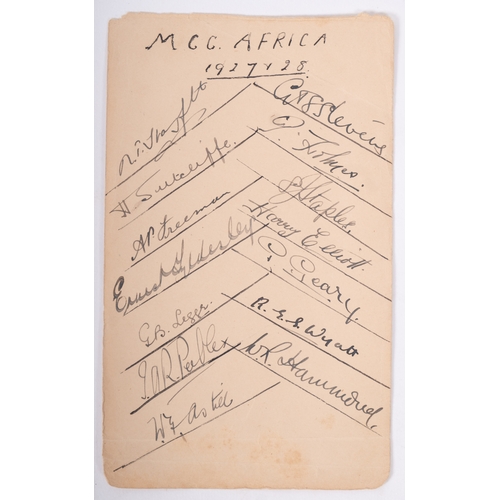 MCC. AFRICA
1927+28.
R.T. Stanyforth
H Sutcliffe.
AP Freeman
Ernest Tyldesley
G.B. Legge.
I.A.R. Peebles
W.E. Astill
G.T.S. Stevens
P. Holmes.
S J Staples.
Harry Elliott
G Geary.
R.E.S. Wyatt
W.R. Hammond.